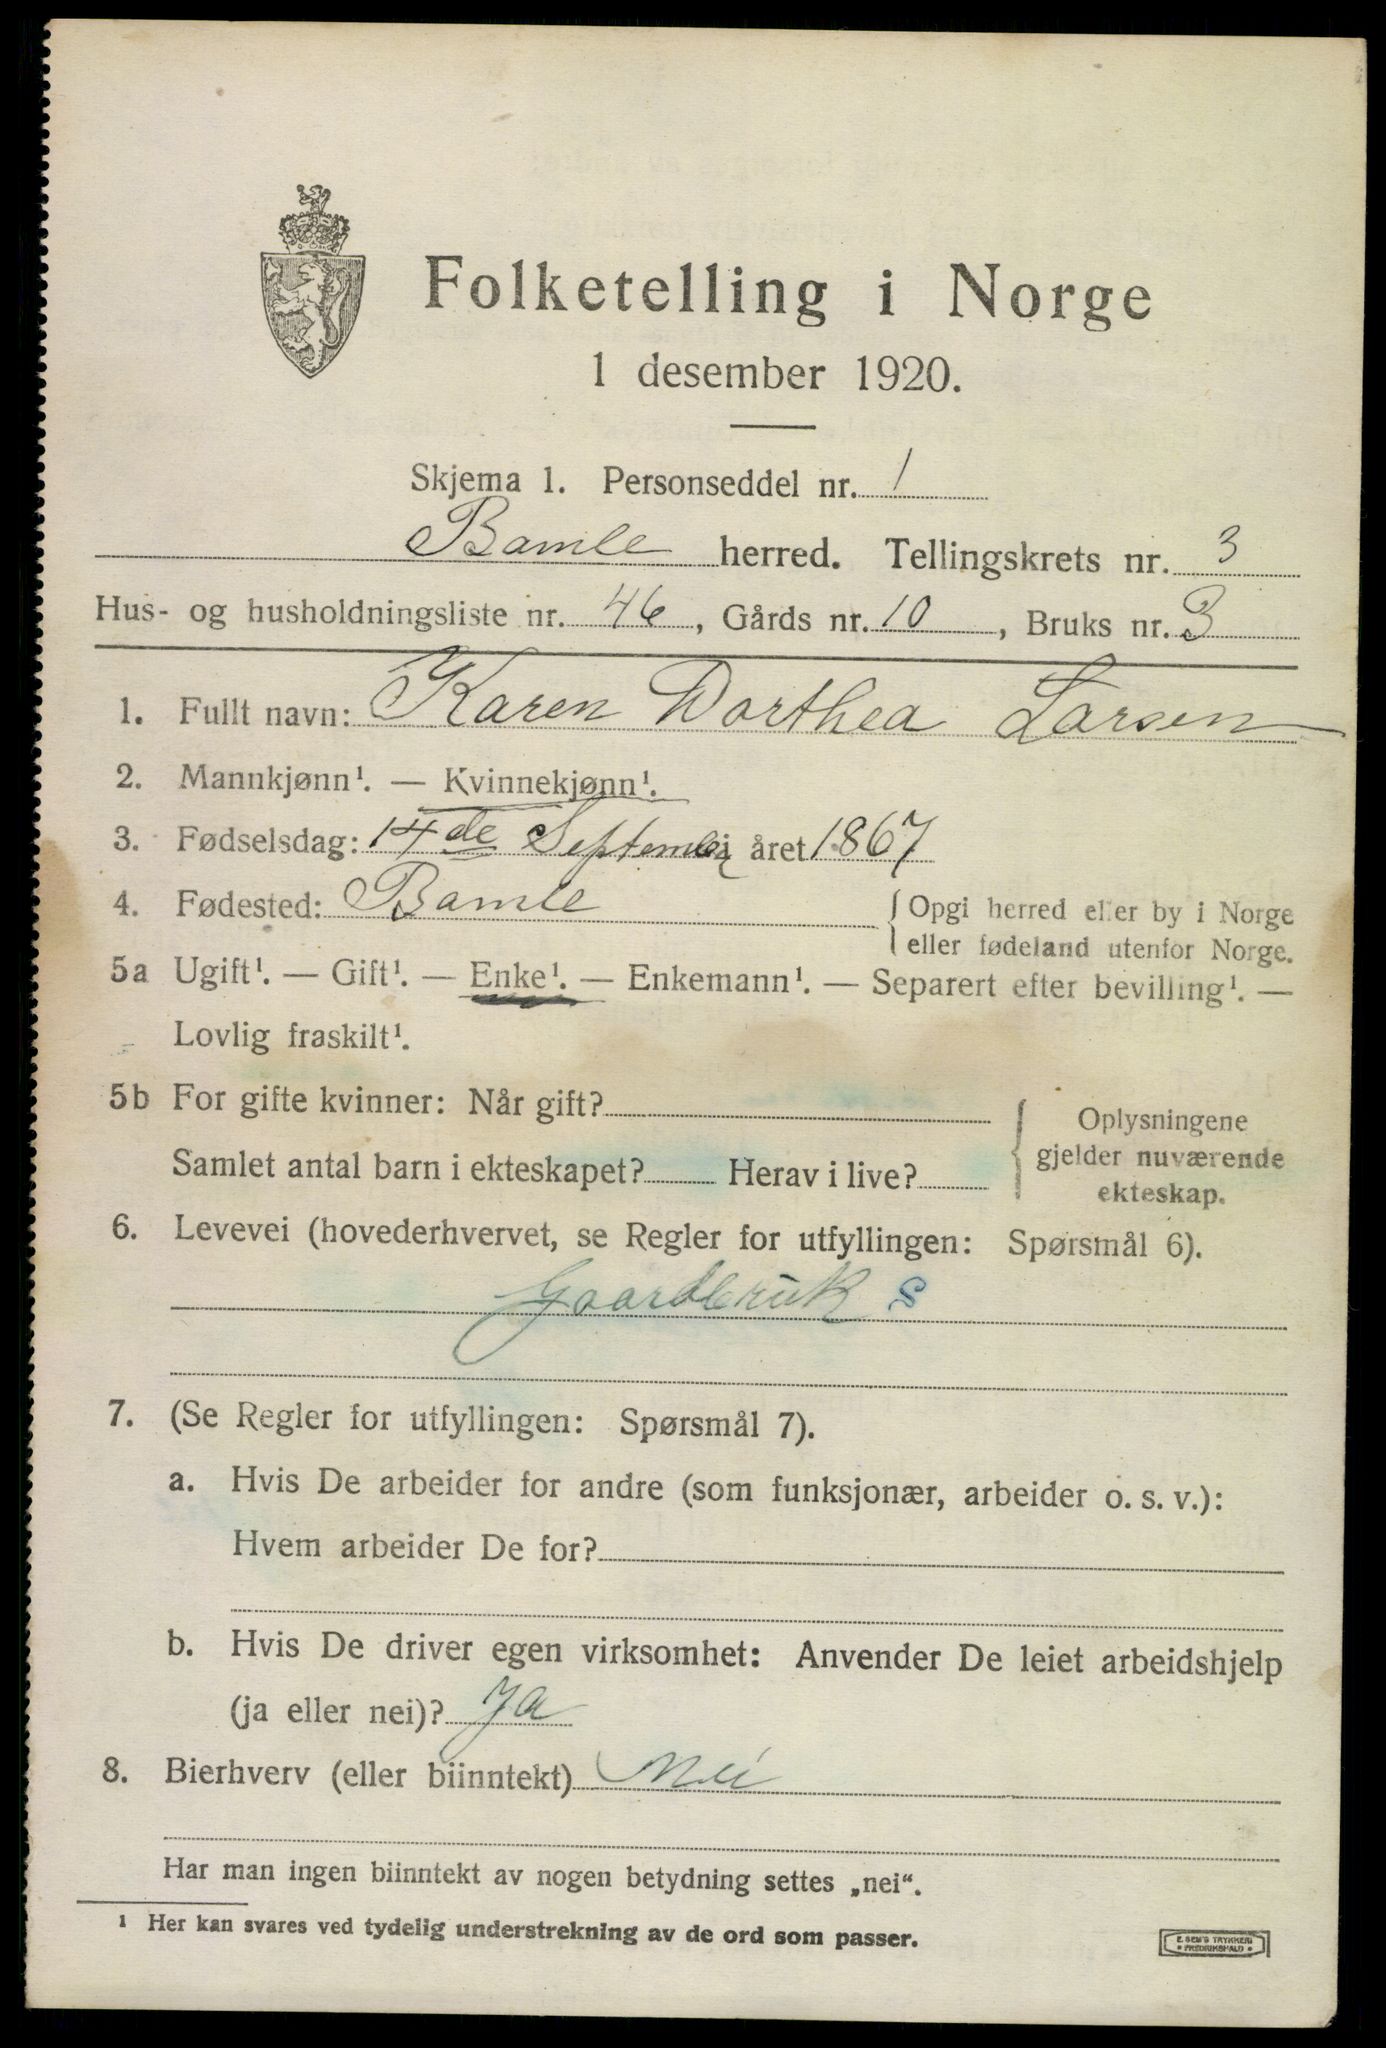 Folketelling i Norge
1 desember 1920.
Skjema 1. Personseddel nr. 1
Bamle herred. Tellingskrets nr. 3
Hus- og husholdningsliste nr. 46, Gårds nr. 10, Bruks nr. 3
1. Fullt navn: Karen Dorthea Larsen
2. Mannkjønn¹. — Kvinnekjønn¹.
3. Fødselsdag: 14de September i året 1867
4. Fødested: Bamle { Opgi herred eller by i Norge
eller fødeland utenfor Norge.
5a Ugift¹. — Gift¹. — Enke¹. — Enkemann¹. — Separert efter bevilling¹. —
Lovlig fraskilt¹.
5b For gifte kvinner: Når gift?
Samlet antal barn i ekteskapet? Herav i live?
{ Oplysningene
gjelder nuværende
ekteskap.
6. Levevei (hovederhvervet, se Regler for utfyllingen: Spørsmål 6).
Gaardbruk S
7. (Se Regler for utfyllingen: Spørsmål 7).
a. Hvis De arbeider for andre (som funksjonær, arbeider o. s. v.):
Hvem arbeider De for?
b. Hvis De driver egen virksomhet: Anvender De leiet arbeidshjelp
(ja eller nei)? Ja
8. Bierhverv (eller biinntekt) Nei
Har man ingen biinntekt av nogen betydning settes „nei“.
¹ Her kan svares ved tydelig understrekning av de ord som passer.
E. SEM'S TRYKKERI
• FREDRIKSHALD •